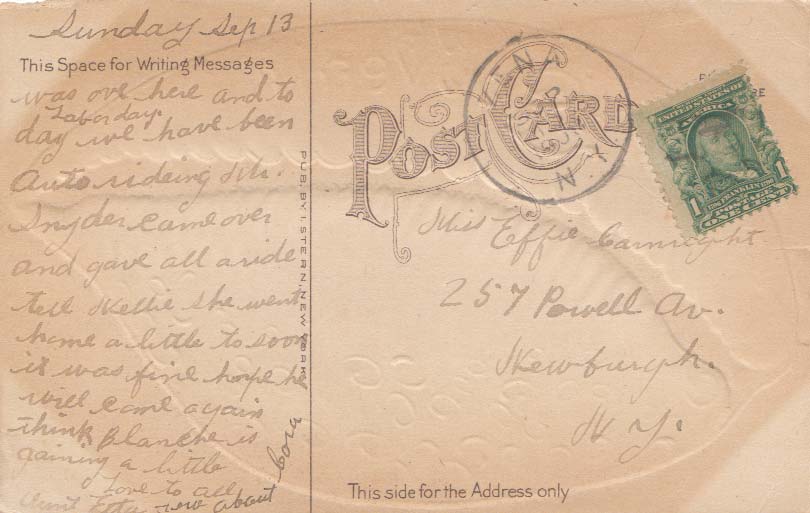 Sunday Sep 13
This Space for Writing Messages
was ove here and to
Labor day
day we have been
Auto rideing Mr.
Snyder came over
and gave all a ride
tell Nellie she went
home a little to soon
it was fine hope he
will come again
think Blanche is
gaining a little
Love to all
Aunt about
Cora
PUB. BY I. STERN, NEW YORK
POST CARD
ZENA
N.Y.
UNITED STATES OF
AMERICA
1 FRANKLIN 1
ONE CENT
Miss Effie Carnright
257 Powell Av.
Newburgh.
N Y.
This side for the Address only